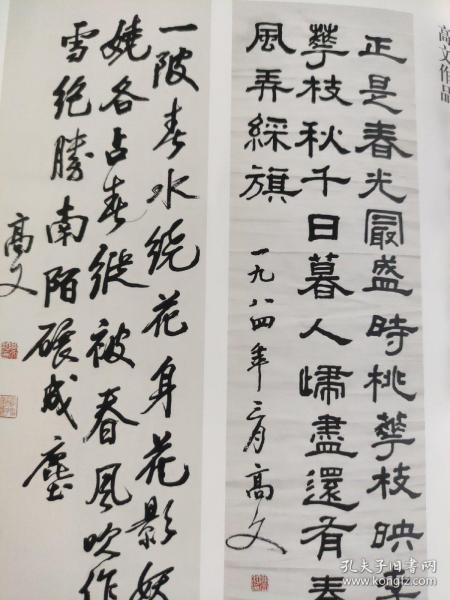 高文作品
正是春光最盛時桃花枝映李
花枝秋千日暮人歸盡還有春
風弄綵旗
一九八四年三月高文
一陂春水繞花身花影妖
嬈各占春縱被春風吹作
雪絕勝南陌碾成塵
高文
孔夫子旧书网